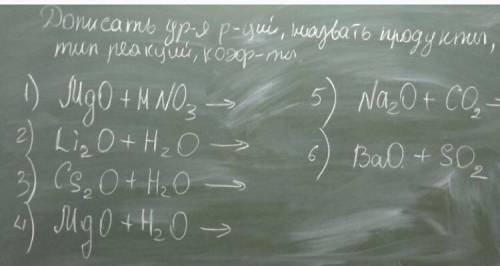 Дописать ур-я р-ций, назвать продукты,
тип реакций, коэф-ты
1) MgO + HNO₃ →
2) Li₂O + H₂O →
3) Cs₂O + H₂O →
4) MgO + H₂O →
5) Na₂O + CO₂ →
6) BaO + SO₂